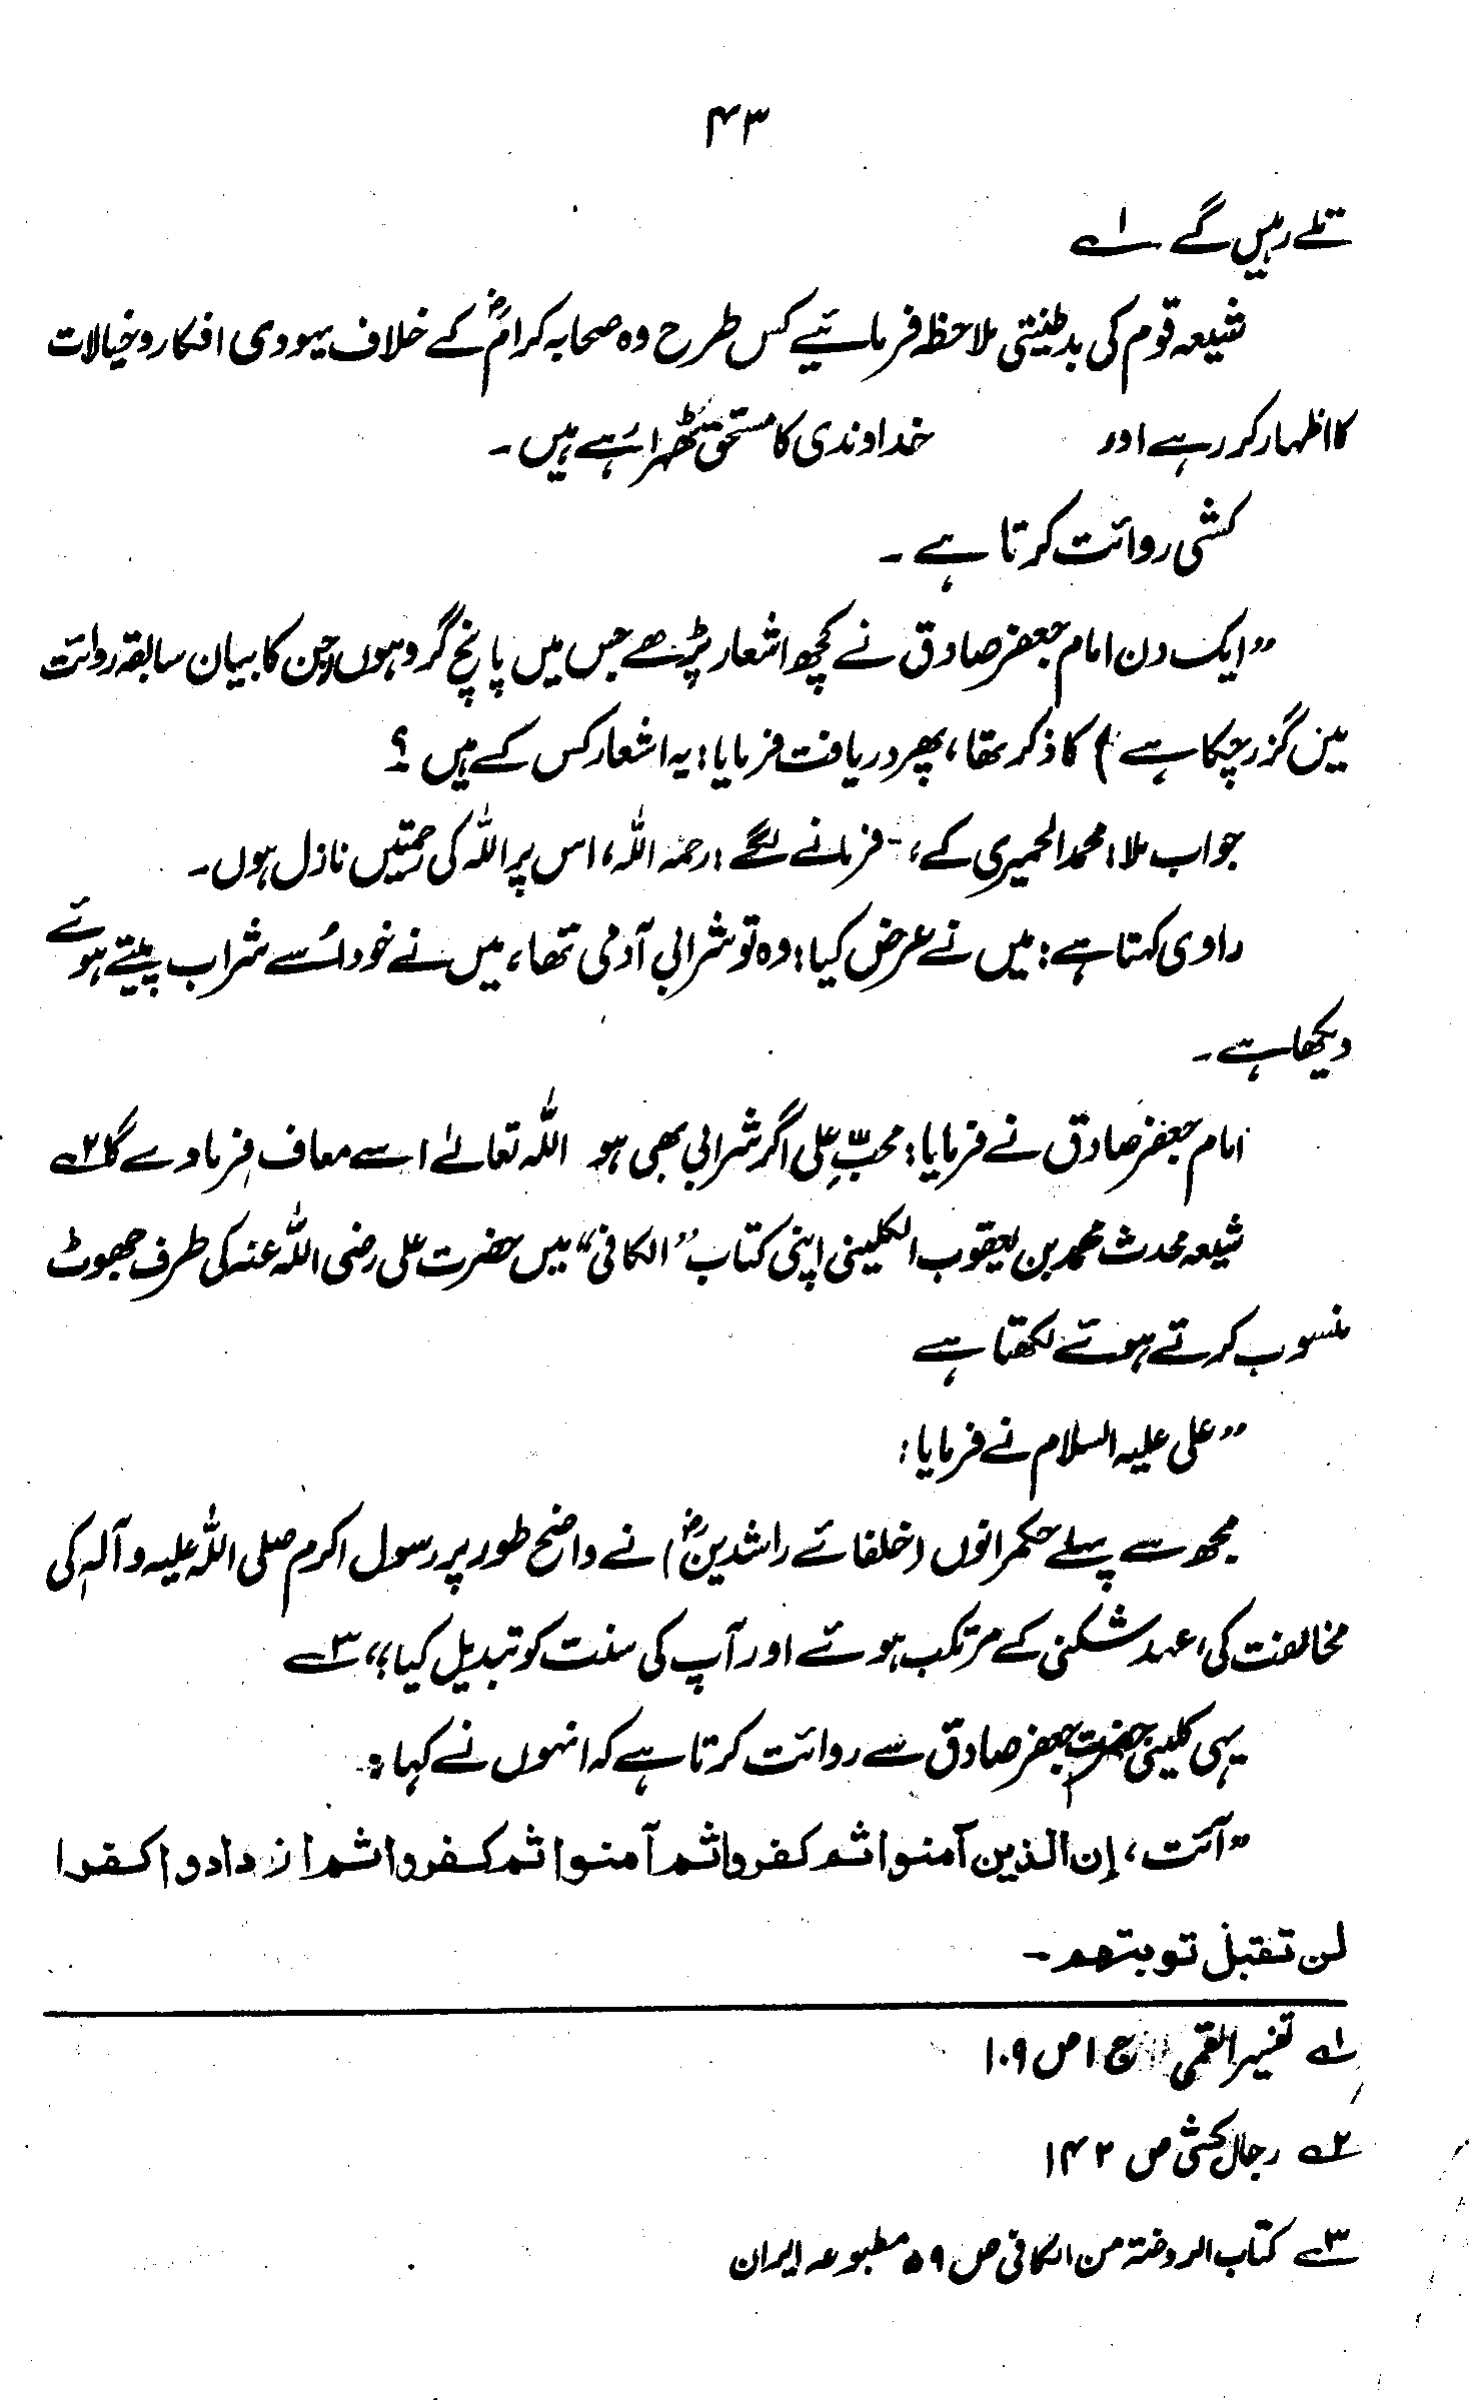 ۴۳
تلے رہیں گے ۱ے
شیعہ قوم کی بد طینتی ملاحظہ فرمائیے کس طرح وہ صحابہ کرامؓ کے خلاف یہودی افکار و خیالات
کا اظہار کر رہے اور خداوندی کا مستحق ٹھہرا رہے ہیں ۔
کشی روائت کرتا ہے ۔
”ایک دن امام جعفر صادق نے کچھ اشعار پڑھے جس میں پانچ گروہوں (جن کا بیان سابقہ روائت
میں گزر چکا ہے ) کا ذکر تھا ، پھر دریافت فرمایا : یہ اشعار کس کے ہیں ؟
جواب ملا : محمد الحمیری کے ، - فرمانے لگے : رحمہ اللہ ، اس پر اللہ کی رحمتیں نازل ہوں ۔
راوی کہتا ہے : میں نے عرض کیا : وہ تو شرابی آدمی تھا ، میں نے خود اُسے شراب پیتے ہوئے
دیکھا ہے ۔
امام جعفر صادق نے فرمایا : محبِّ علی اگر شرابی بھی ہو اللہ تعالےٰ اسے معاف فرما دے گا ۲ے
شیعہ محدث محمد بن یعقوب الکلینی اپنی کتاب ”الکافی“ میں حضرت علی رضی اللہ عنہ کی طرف جھوٹ
منسوب کرتے ہوئے لکھتا ہے
”علی علیہ السلام نے فرمایا :
مجھ سے پہلے حکمرانوں (خلفائے راشدینؓ) نے واضح طور پر رسول اکرم صلی اللہ علیہ و آلہ کی
مخالفت کی ، عہد شکنی کے مرتکب ہوئے اور آپ کی سنت کو تبدیل کیا ،“ ۳ے
یہی کلینی حضرت جعفر صادق سے روائت کرتا ہے کہ انہوں نے کہا :
”آئت ، إن الذین آمنوا ثم کفروا ثم آمنوا ثم کفروا ثم ازدادوا کفرا
لن تقبل توبتھم ۔
۱ے تفسیر القمی ج ۱ ص ۱۰۹
۲ے رجال کشی ص ۱۴۲
۳ے کتاب الروضۃ من الکافی ص ۵۹ مطبوعہ ایران